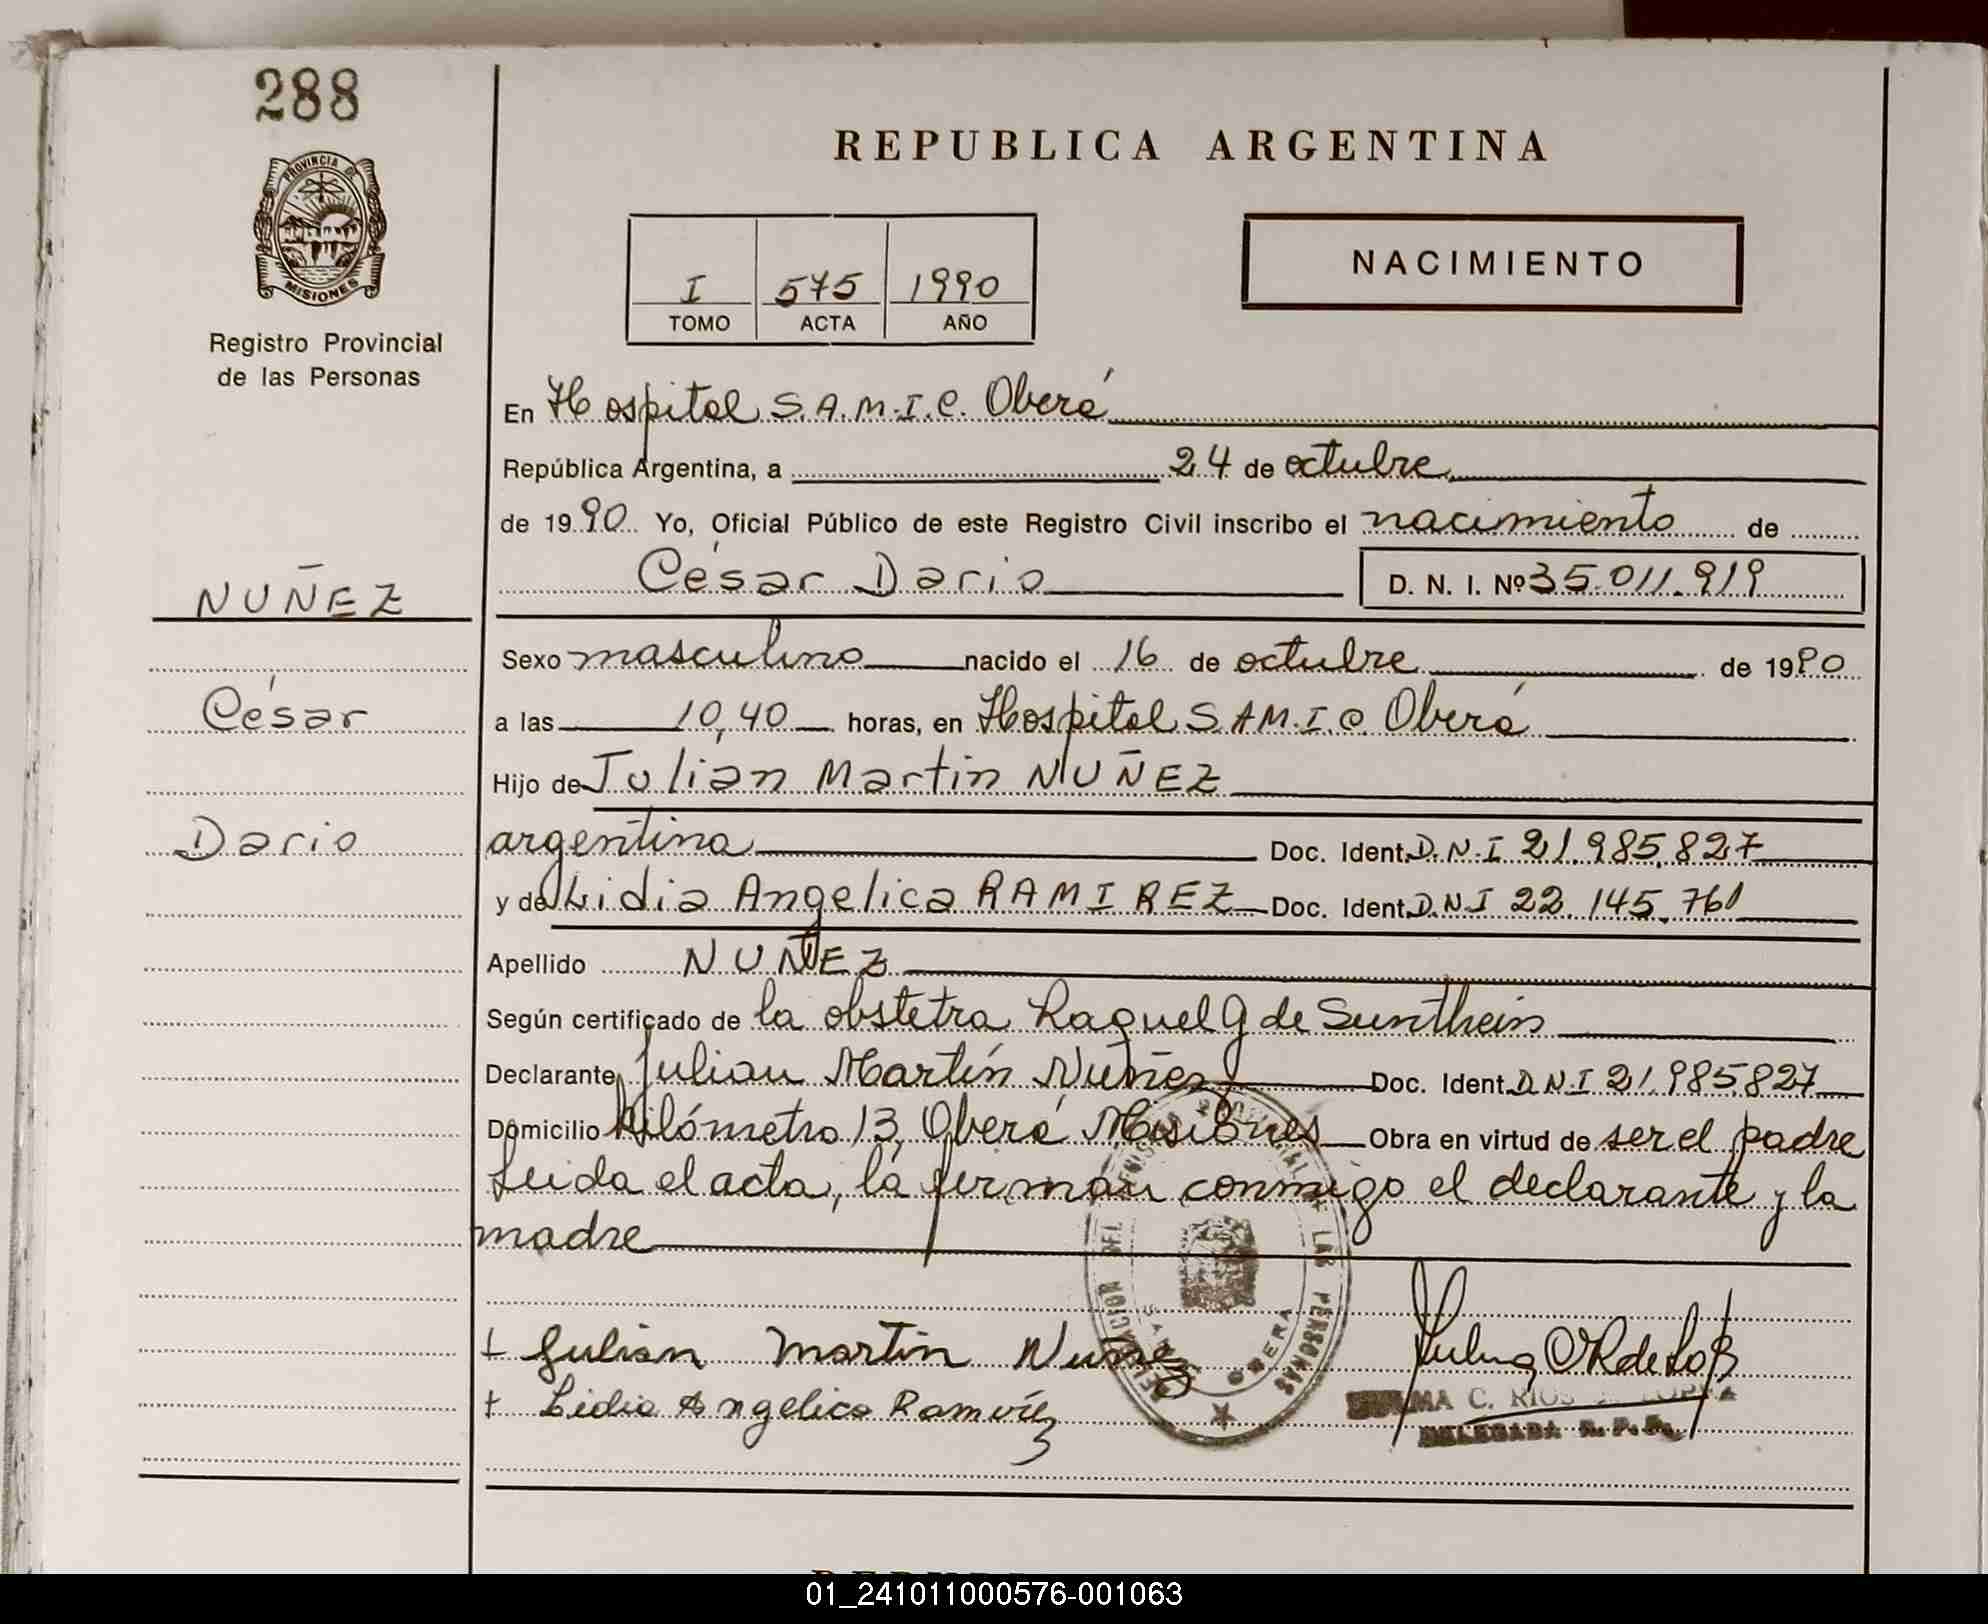 288
REPUBLICA ARGENTINA
PROVINCIA DE
MISIONES
Registro Provincial
de las Personas
I 575 1990
TOMO ACTA AÑO
NACIMIENTO
En Hospital S.A.M.I.C. Oberá
República Argentina, a 24 de octubre
de 1990 Yo, Oficial Público de este Registro Civil inscribo el nacimiento de
César Dario D. N. I. Nº 35.011.919
NUÑEZ
César
Dario
Sexo masculino nacido el 16 de octubre de 1990
a las 10,40 horas, en Hospital S.AM.I.C. Oberá
Hijo de Julián Martin NUÑEZ
argentina Doc. Ident. D.N.I 21.985.827
y de Lidia Angelica RAMIREZ Doc. Ident. D.N.I 22.145.761
Apellido NUÑEZ
Según certificado de la obstetra Raquel G de Sunthein
Declarante Julian Martín Nuñez Doc. Ident. D.N.I 21.985.827
Domicilio Kilómetro 13, Oberá Misiones Obra en virtud de ser el padre
Leida el acta, la firman conmigo el declarante y la
madre
+ Julian Martin Nuñez
+ Lidia Angelica Ramirez
DEL LAS PERSONAS
OBERA
C. RIOS
DELEGADA R.P.P.
01_241011000576-001063